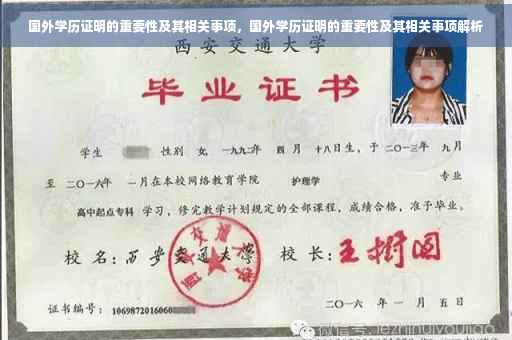 国外学历证明的重要性及其相关事项，国外学历证明的重要性及其相关事项解析
西安交通大学
毕业证书
学生 性别 女，一九九二年 四月 十八日生，于二〇一三年 九月
至 二〇一六年 一月在本校网络教育学院 护理学 专业
高中起点专科 学习，修完教学计划规定的全部课程，成绩合格，准予毕业。
校名：西安交通大学 校长：王树国
西安交通大学
证书编号：1069872016060
二〇一六 年 一 月 五 日
微信号: jezhinuiyoujiao